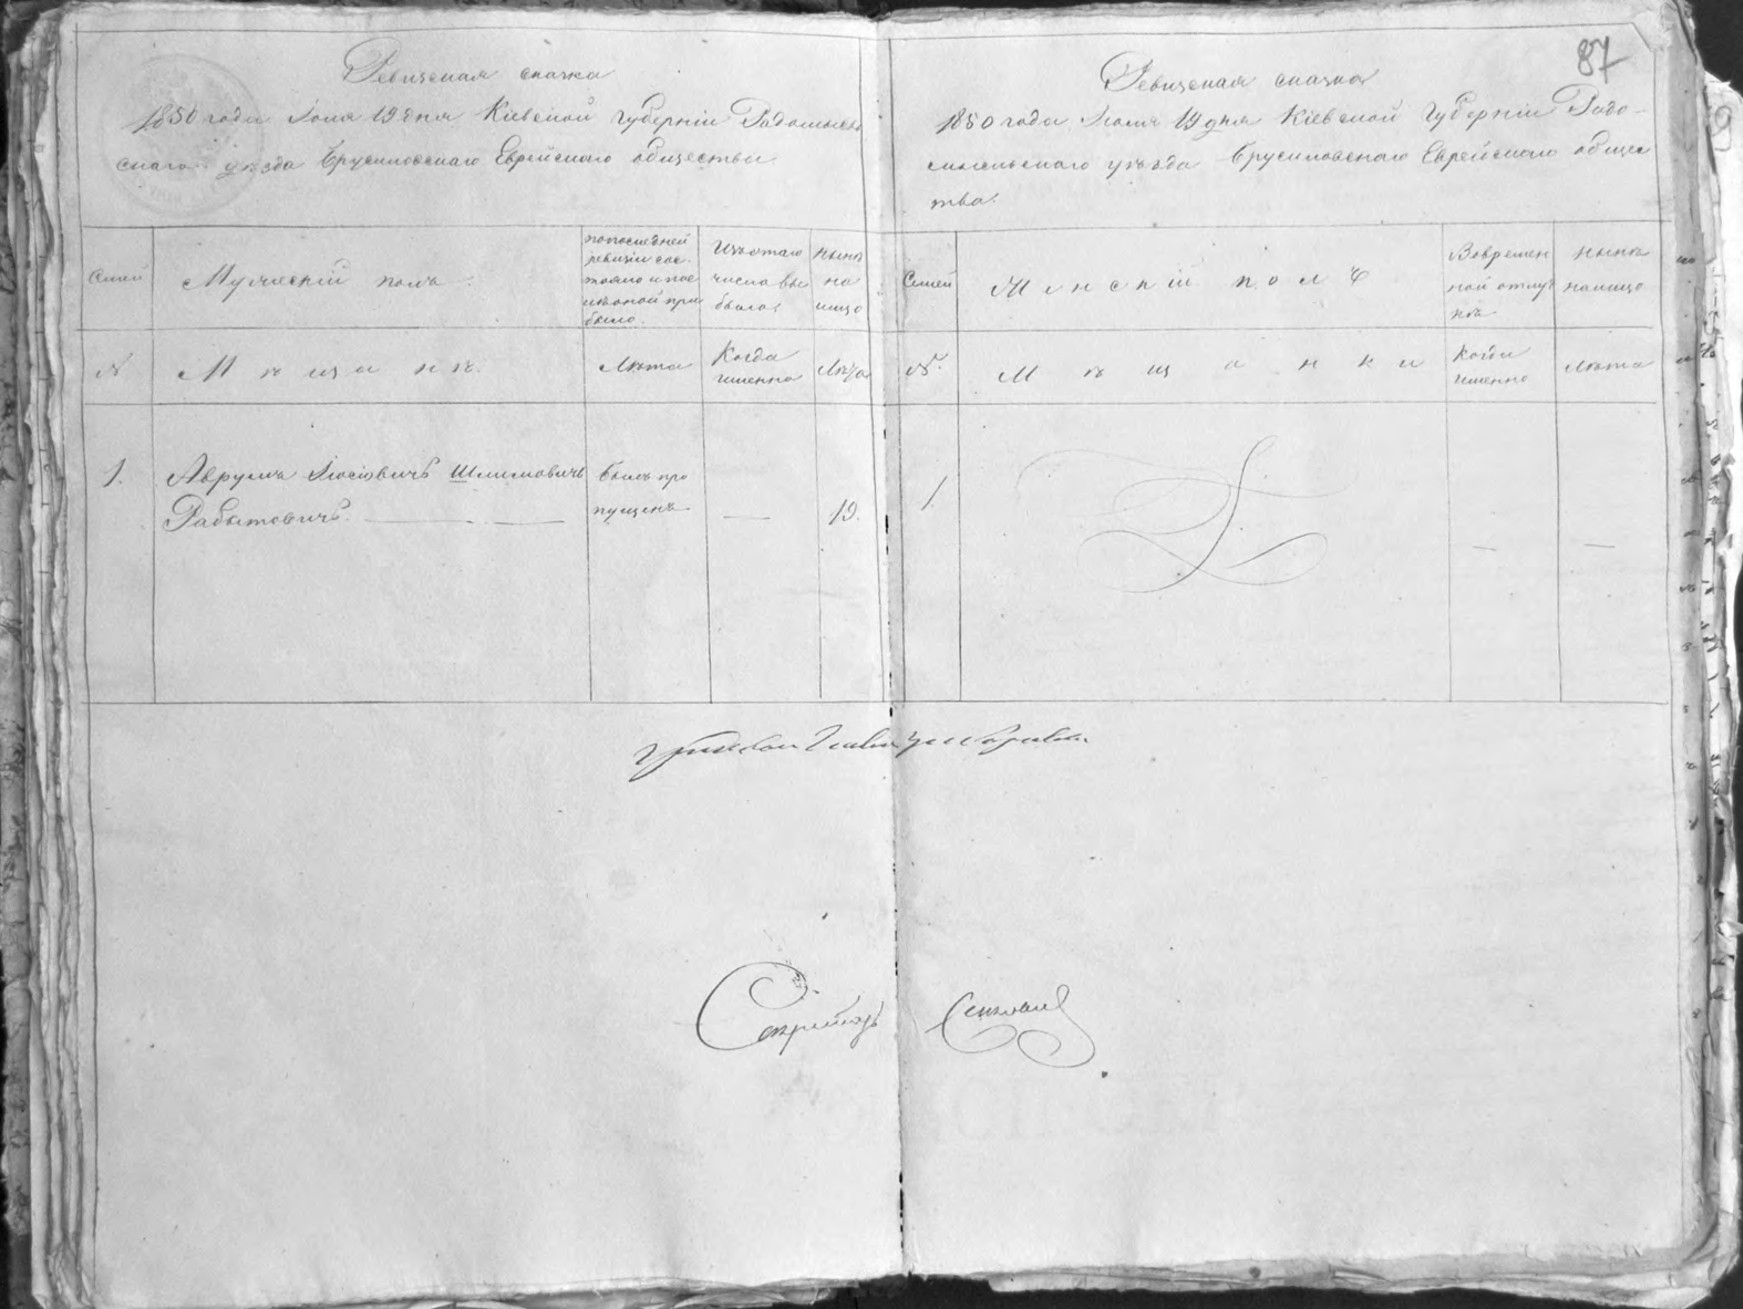 87
Ревизская сказка
1850 года Іюля 19 дня Кіевской Губерніи Радомысль
скаго уезда Брусиловскаго Еврейскаго общества
Семей
Мужескій полъ
по последней
ревизіи сос-
тояло и пос
ле оной при
было.
Изъ того
числа вы
было
ныне
на
лицо
№
Мѣщанъ
Лета
Когда
именно
Лета
1.
Аврумъ Іосіовичъ Шлимовичъ
Рабитовичъ
былъ про
пущенъ
—
19.
Ревизская сказка
1850 года Іюля 19 дня Кіевской Губерніи Радо-
мысльскаго уѣзда Брусиловскаго Еврейскаго общес
тва.
Семей
Женскій полъ
Вовремен
ной отлуч
кѣ
ныне
налицо
№.
Мѣщанки
Когда
именно
Лета
1.
—
—
Секретарь